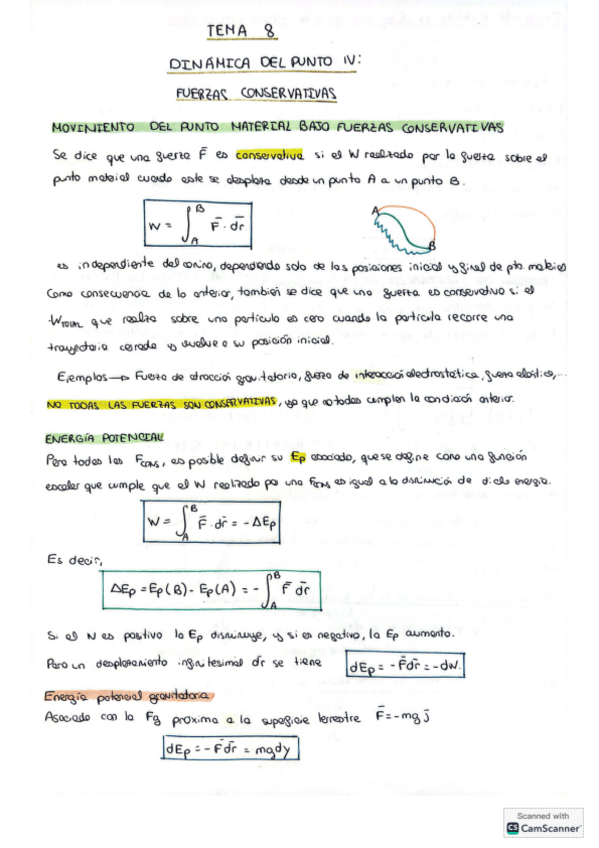 TEMA 8
DINÁMICA DEL PUNTO IV:
FUERZAS CONSERVATIVAS
MOVIMIENTO DEL PUNTO MATERIAL BAJO FUERZAS CONSERVATIVAS
Se dice que una fuerza F̄ es conservativa si el W realizado por la fuerza sobre el
punto material cuando este se desplaza desde un punto A a un punto B.
W = ∫_A^B F̄ · dr̄
A
B
es independiente del camino, dependiendo solo de las posiciones inicial y final de pto. material
Como consecuencia de lo anterior, también se dice que una fuerza es conservativa si el
W_TOTAL que realiza sobre una partícula es cero cuando la partícula recorre una
trayectoria cerrada y vuelve a su posición inicial.
Ejemplos → Fuerza de atracción gravitatoria, fuerza de interacción electrostática, fuerza elástica,...
NO TODAS LAS FUERZAS SON CONSERVATIVAS, ya que no todas cumplen la condición anterior.
ENERGÍA POTENCIAL
Para todas las F_CONS, es posible definir su Ep asociada, que se define como una función
escalar que cumple que el W realizado por una F_CONS es igual a la disminución de dicha energía.
W = ∫_A^B F̄ · dr̄ = - ΔEp
Es decir,
ΔEp = Ep(B) - Ep(A) = - ∫_A^B F̄ dr̄
Si el W es positivo la Ep disminuye, y si es negativo, la Ep aumenta.
Para un desplazamiento infinitesimal dr se tiene dEp = - F̄dr̄ = - dW.
Energía potencial gravitatoria
Asociada con la Fg próxima a la superficie terrestre F̄ = - mg j̄
dEp = - F̄ dr̄ = mgdy
Scanned with
CS CamScanner